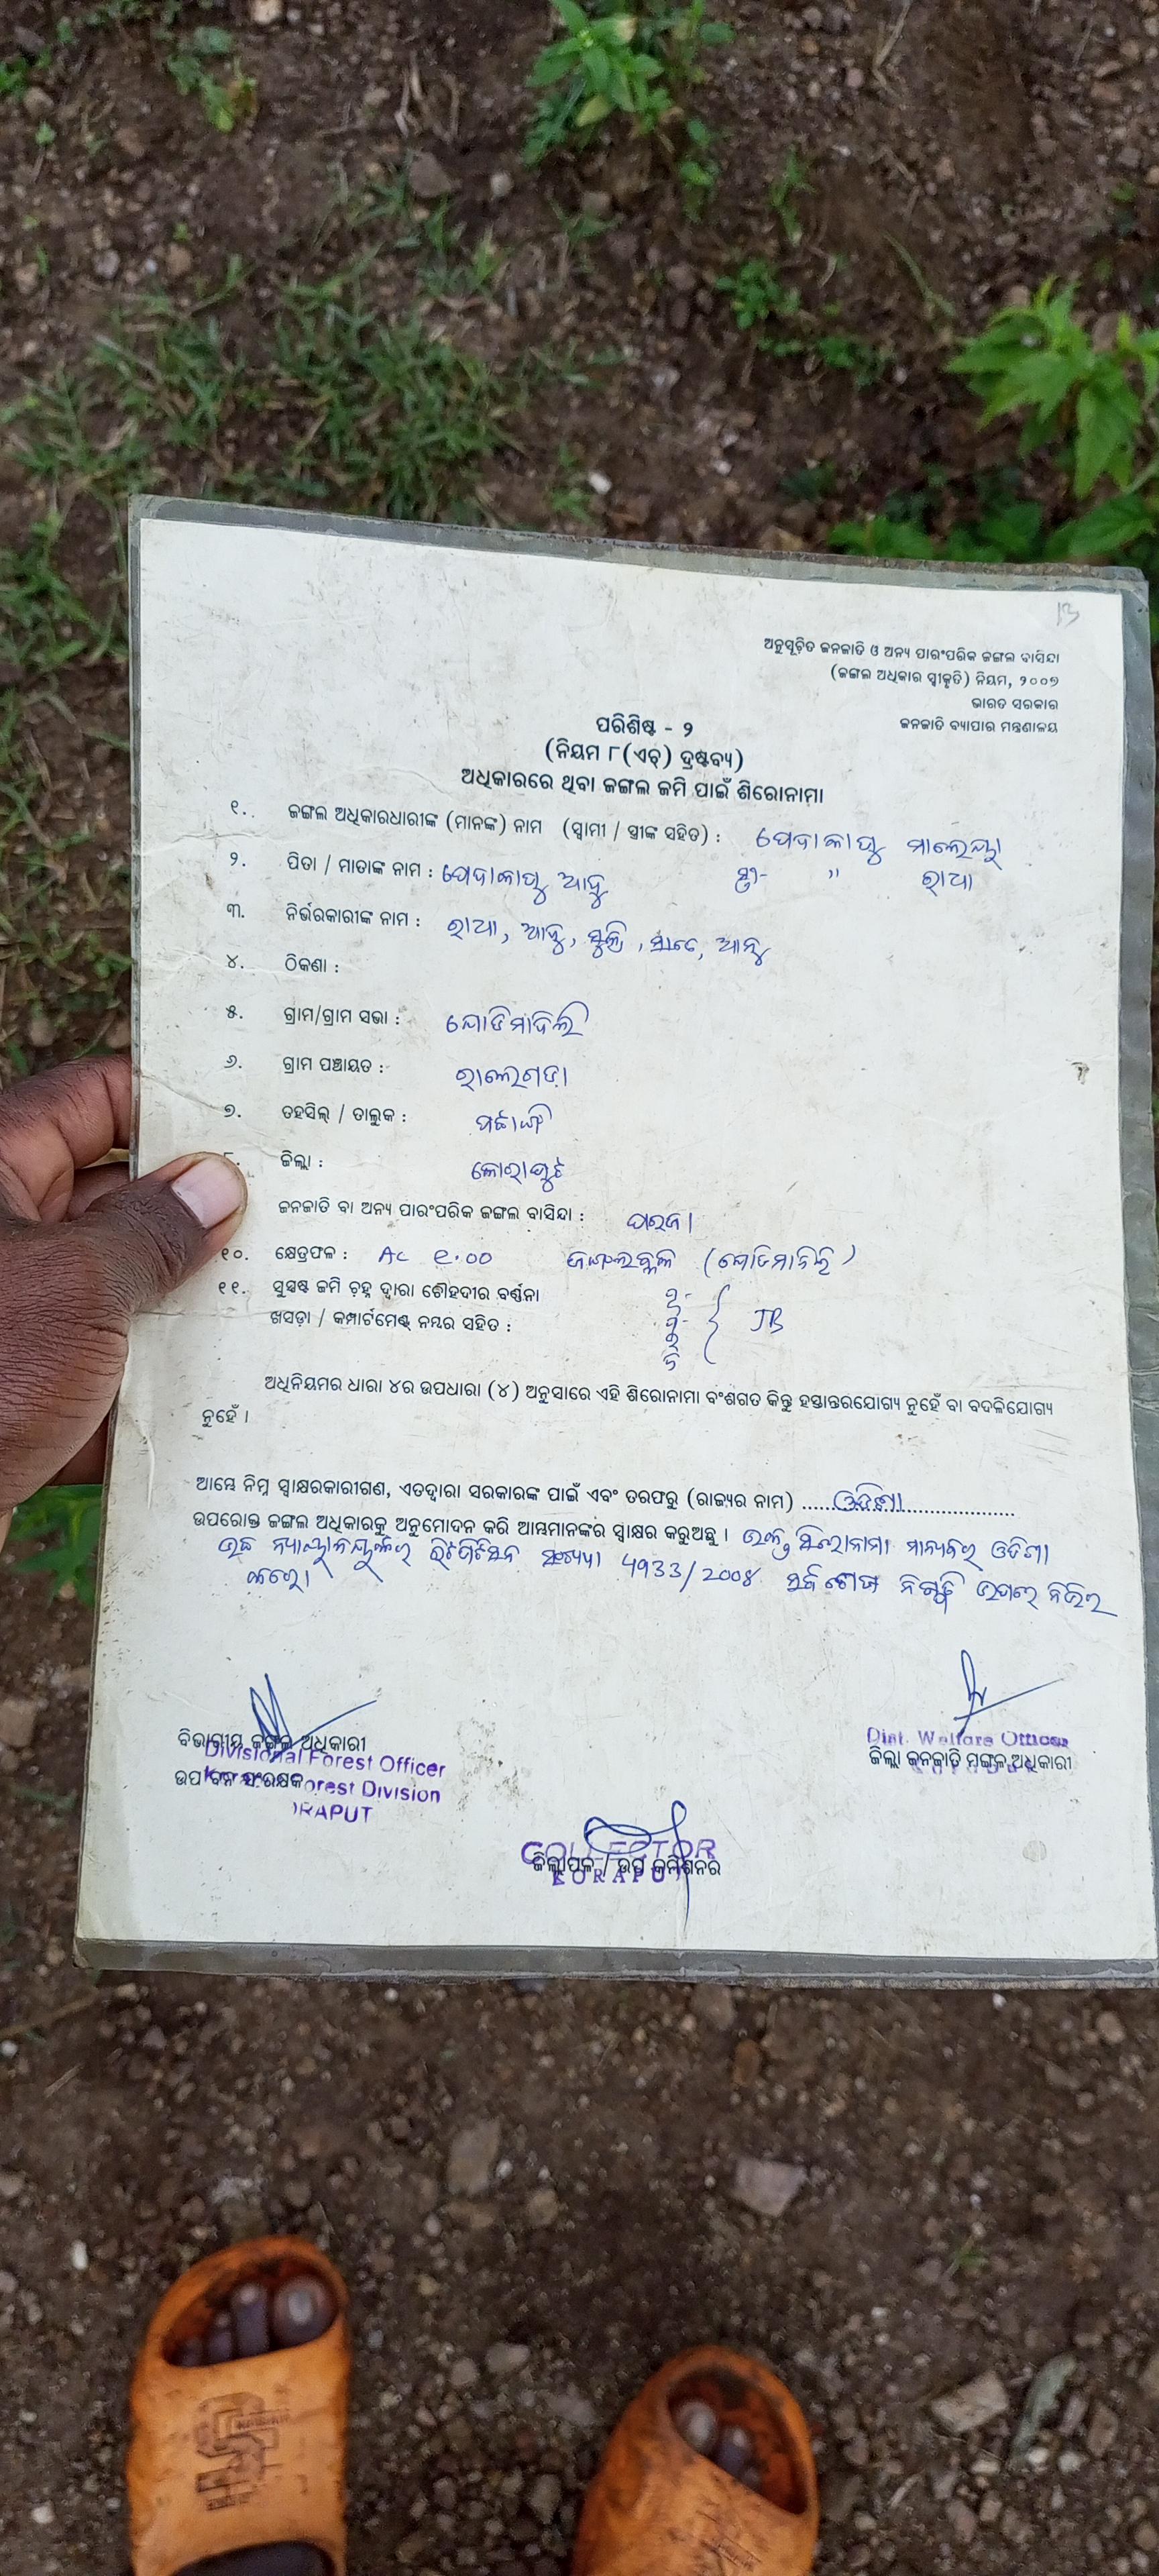 13
ଅନୁସୂଚିତ ଜନଜାତି ଓ ଅନ୍ୟ ପାରଂପରିକ ଜଙ୍ଗଲ ବାସିନ୍ଦା
(ଜଙ୍ଗଲ ଅଧିକାର ସ୍ୱୀକୃତି) ନିୟମ, ୨୦୦୭
ଭାରତ ସରକାର
ଜନଜାତି ବ୍ୟାପାର ମନ୍ତ୍ରଣାଳୟ
ପରିଶିଷ୍ଟ - ୨
(ନିୟମ ୮(ଏଚ୍) ଦ୍ରଷ୍ଟବ୍ୟ)
ଅଧିକାରରେ ଥିବା ଜଙ୍ଗଲ ଜମି ପାଇଁ ଶିରୋନାମା
୧. ଜଙ୍ଗଲ ଅଧିକାରଧାରୀଙ୍କ (ମାନଙ୍କ) ନାମ (ସ୍ୱାମୀ / ସ୍ତ୍ରୀଙ୍କ ସହିତ) : ପେଦାକାପୁ
୨. ପିତା / ମାତାଙ୍କ ନାମ : ପେଦାକାପୁ ସ୍ତ୍ରୀ- " ରାଧା
୩. ନିର୍ଭରକାରୀଙ୍କ ନାମ : ରାଧା,
୪. ଠିକଣା :
୫. ଗ୍ରାମ/ଗ୍ରାମ ସଭା :
୬. ଗ୍ରାମ ପଞ୍ଚାୟତ : ରାଲେଗଡ଼ା
୭. ତହସିଲ୍ / ତାଲୁକ : ପଟାଙ୍ଗି
୮. ଜିଲ୍ଲା : କୋରାପୁଟ
ଜନଜାତି ବା ଅନ୍ୟ ପାରଂପରିକ ଜଙ୍ଗଲ ବାସିନ୍ଦା : ପରଜା
୧୦. କ୍ଷେତ୍ରଫଳ : Ac ୧.00 ଜଙ୍ଗଲବ୍ଲକ
୧୧. ସୁସ୍ପଷ୍ଟ ଜମି ଚିହ୍ନ ଦ୍ୱାରା ଚୌହଦୀର ବର୍ଣ୍ଣନା
ଖସଡ଼ା / କମ୍ପାର୍ଟମେଣ୍ଟ ନମ୍ବର ସହିତ : JB
ଅଧିନିୟମର ଧାରା ୪ର ଉପଧାରା (୪) ଅନୁସାରେ ଏହି ଶିରୋନାମା ବଂଶଗତ କିନ୍ତୁ ହସ୍ତାନ୍ତରଯୋଗ୍ୟ ନୁହେଁ ବା ବଦଳିଯୋଗ୍ୟ
ନୁହେଁ ।
ଆମ୍ଭେ ନିମ୍ନ ସ୍ୱାକ୍ଷରକାରୀଗଣ, ଏତଦ୍ୱାରା ସରକାରଙ୍କ ପାଇଁ ଏବଂ ତରଫରୁ (ରାଜ୍ୟର ନାମ) ..... ଓଡିଶା .....
ଉପରୋକ୍ତ ଜଙ୍ଗଲ ଅଧିକାରକୁ ଅନୁମୋଦନ କରି ଆମ୍ଭମାନଙ୍କର ସ୍ୱାକ୍ଷର କରୁଅଛୁ । ଉକ୍ତ ସିରୋନାମା ମାନ୍ୟବର ଓଡିଶା
ଉଚ୍ଚ ନ୍ୟାୟାଳୟଙ୍କର ରିଟପିଟିସନ ସଂଖ୍ୟା 4933/2008 ନିଷ୍ପତ୍ତି ଉପରେ ନିର୍ଭର
କରେ।
ବିଭାଗୀୟ ଜଙ୍ଗଲ ଅଧିକାରୀ
Divisional Forest Officer
ଉପ ବନ ସଂରକ୍ଷକ
Forest Division
ORAPUT
Dist. Welfare Officer
ଜିଲ୍ଲା ଜନଜାତି ମଙ୍ଗଳ ଅଧିକାରୀ
COLLECTOR
ଜିଲ୍ଲାପାଳ / ଉପ କମିଶନର
KORAPUT